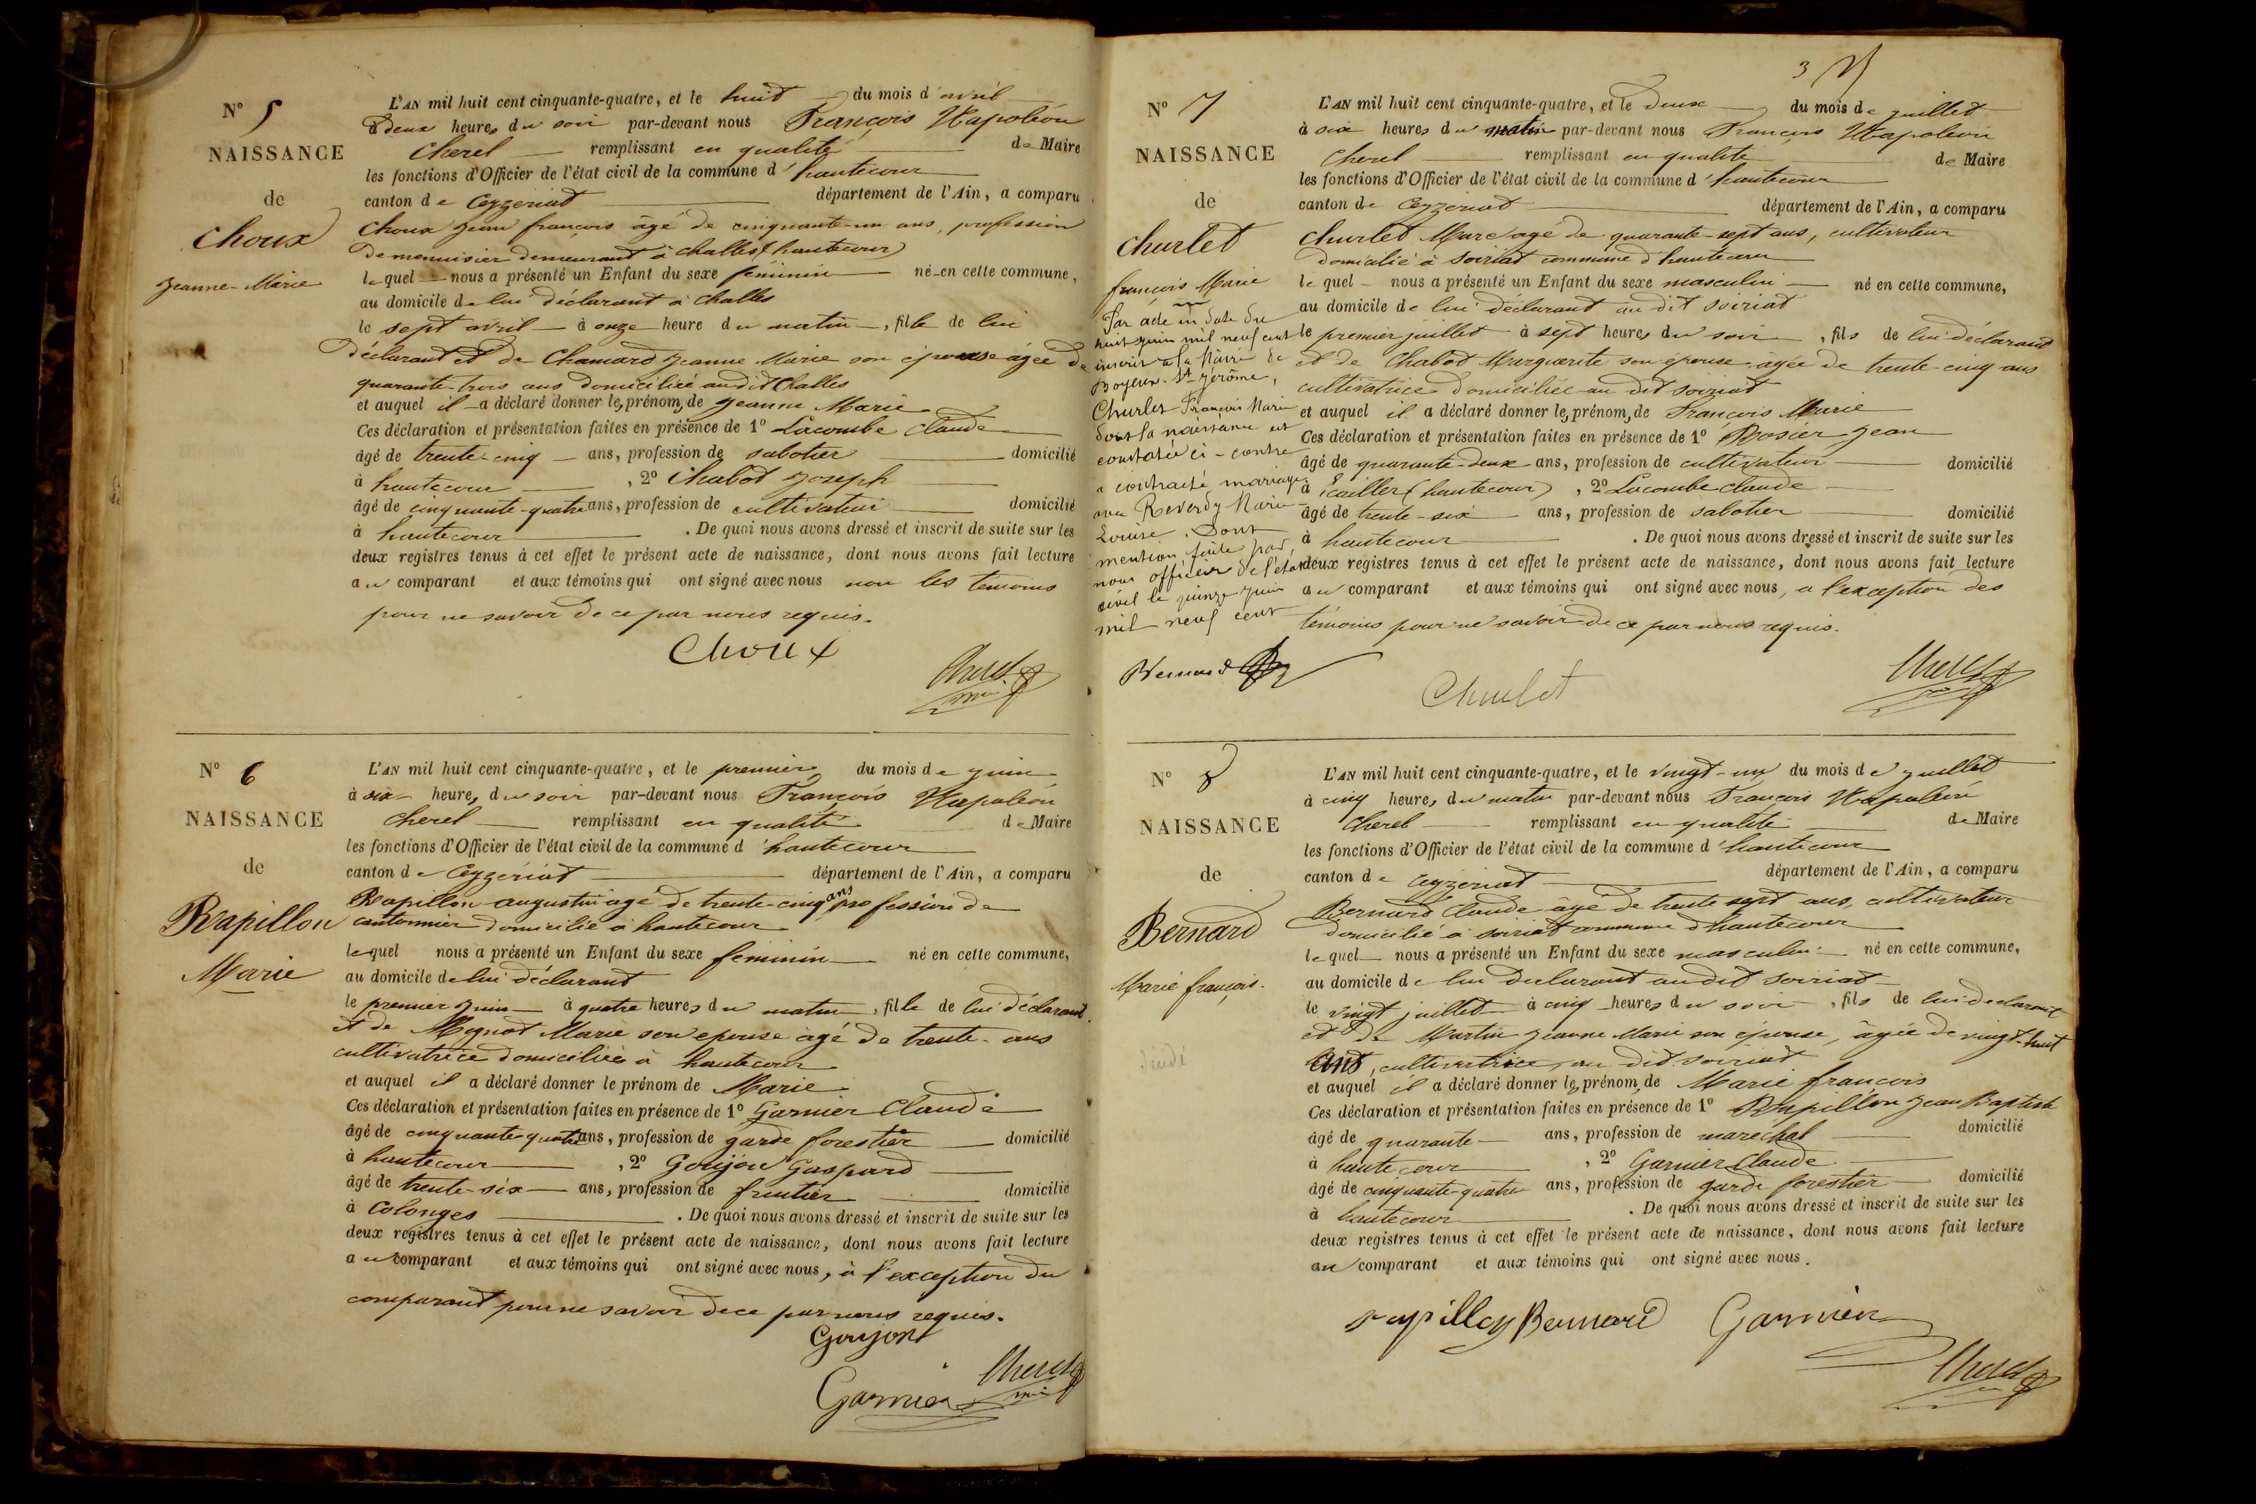 N° 5
NAISSANCE
de
Choux
Jeanne-Marie
L'AN mil huit cent cinquante-quatre, et le huit du mois d'avril
à deux heures du soir par-devant nous François Napoléon
Cherel remplissant en qualité de Maire
les fonctions d'Officier de l'état civil de la commune d'hautecour
canton de Ceyzeriat département de l'Ain, a comparu
Choux Jean françois âgé de cinquante-un ans, profession
de menuisier demeurant à Challes (hautecour)
lequel nous a présenté un Enfant du sexe féminin né en cette commune,
au domicile de lui déclarant à Challes
le sept avril à onze heure du matin, fille de lui
déclarant et de Chamard Jeanne Marie son épouse âgée de
quarante-trois ans domiciliée audit Challes
et auquel il a déclaré donner les prénoms de Jeanne Marie
Ces déclaration et présentation faites en présence de 1° Lacombe Claude
âgé de trente-cinq ans, profession de sabotier domicilié
à hautecour, 2° Chabot Joseph
âgé de cinquante-quatre ans, profession de cultivateur domicilié
à hautecour. De quoi nous avons dressé et inscrit de suite sur les
deux registres tenus à cet effet le présent acte de naissance, dont nous avons fait lecture
au comparant et aux témoins qui ont signé avec nous non les temoins
pour ne savoir de ce par nous requis.
Choux
Cherel
N° 6
NAISSANCE
de
Rapillon
Marie
L'AN mil huit cent cinquante-quatre, et le premier du mois de juin
à six heures du soir par-devant nous François Napoléon
Cherel remplissant en qualité de Maire
les fonctions d'Officier de l'état civil de la commune d'hautecour
canton de Ceyzériat département de l'Ain, a comparu
Rapillon augustin âgé de trente-cinq ans profession de
cantonnier domicilié à hautecour
lequel nous a présenté un Enfant du sexe féminin né en cette commune,
au domicile de lui déclarant
le premier juin à quatre heures du matin, fille de lui déclarant
et de Mignot Marie son epouse âgé de trente ans
cultivatrice domiciliée à hautecour
et auquel il a déclaré donner le prénom de Marie
Ces déclaration et présentation faites en présence de 1° Garnier Claude
âgé de cinquante-quatre ans, profession de garde forestier domicilié
à hautecour, 2° Goujon Gaspard
âgé de trente-six ans, profession de fruitier domicilié
à Colonges. De quoi nous avons dressé et inscrit de suite sur les
deux registres tenus à cet effet le présent acte de naissance, dont nous avons fait lecture
au comparant et aux témoins qui ont signé avec nous, à l'exception du
comparant pour ne savoir de ce par nous requis.
Goujon
Garnier Cherel
3
N° 7
NAISSANCE
de
Churlet
françois Marie
Par acte en date du
huit juin mil neuf cent
inscrit à la Mairie de
Boyeux-St Jérôme,
Churlet François Marie
dont la naissance est
constatée ci-contre
a contracté mariage
avec Reverdy Marie
Louise. Dont
mention faite par
nous officier de l'état
civil le quinze juin
mil neuf cent
Bernard
L'AN mil huit cent cinquante-quatre, et le deux du mois de juillet
à six heures du matin par-devant nous François Napoléon
Cherel remplissant en qualité de Maire
les fonctions d'Officier de l'état civil de la commune d'hautecour
canton de Ceyzeriat département de l'Ain, a comparu
Churlet Marc agé de quarante-sept ans, cultivateur
domicilié à Soiriat commune d'hautecour
lequel nous a présenté un Enfant du sexe masculin né en cette commune,
au domicile de lui déclarant au dit soiriat
le premier juillet à sept heures du soir, fils de lui déclarant
et de Chabot Marguerite son épouse âgée de trente-cinq ans
cultivatrice domiciliée au dit soiriat
et auquel il a déclaré donner les prénoms de François Marie
Ces déclaration et présentation faites en présence de 1° Bosier Jean
âgé de quarante-deux ans, profession de cultivateur domicilié
à Ecailler (hautecour), 2° Lacombe Claude
âgé de trente-six ans, profession de sabotier domicilié
à hautecour. De quoi nous avons dressé et inscrit de suite sur les
deux registres tenus à cet effet le présent acte de naissance, dont nous avons fait lecture
au comparant et aux témoins qui ont signé avec nous, a l'exception des
témoins pour ne savoir de ce par nous requis.
Churlet
Cherel
N° 8
NAISSANCE
de
Bernard
Marie françois.
L'AN mil huit cent cinquante-quatre, et le vingt-un du mois de juillet
à cinq heures du matin par-devant nous François Napoléon
Cherel remplissant en qualité de Maire
les fonctions d'Officier de l'état civil de la commune d'hautecour
canton de Ceyzeriat département de l'Ain, a comparu
Bernard Claude âgé de trente sept ans, cultivateur
domicilié à soiriat commune d'hautecour
lequel nous a présenté un Enfant du sexe masculin né en cette commune,
au domicile de lui declarant audit soiriat
le vingt juillet à cinq heures du soir, fils de lui declarant
et de Martin Jeanne Marie son épouse, âgée de vingt-huit
ans, cultivatrice, au dit soiriat
et auquel il a déclaré donner les prénoms de Marie françois
Ces déclaration et présentation faites en présence de 1° Rapillon Jean Baptiste
âgé de quarante ans, profession de maréchal domicilié
à hautecour, 2° Garnier Claude
âgé de cinquante-quatre ans, profession de garde forestier domicilié
à hautecour. De quoi nous avons dressé et inscrit de suite sur les
deux registres tenus à cet effet le présent acte de naissance, dont nous avons fait lecture
au comparant et aux témoins qui ont signé avec nous.
rapillon Bernard Garnier
Cherel